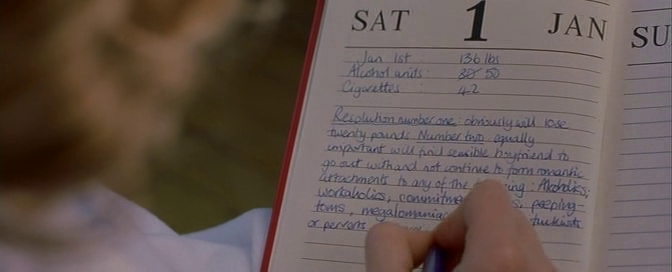 SAT 1 JAN
SU
Jan 1st : 136 lbs
Alcohol units : 50
Cigarettes : 42
Resolution number one: obviously will lose
twenty pounds. Number two: equally
important will find sensible boyfriend to
go out with and not continue to form romantic
attachments to any of the : Alcoholics,
workaholics, peeping-
toms,
or perverts